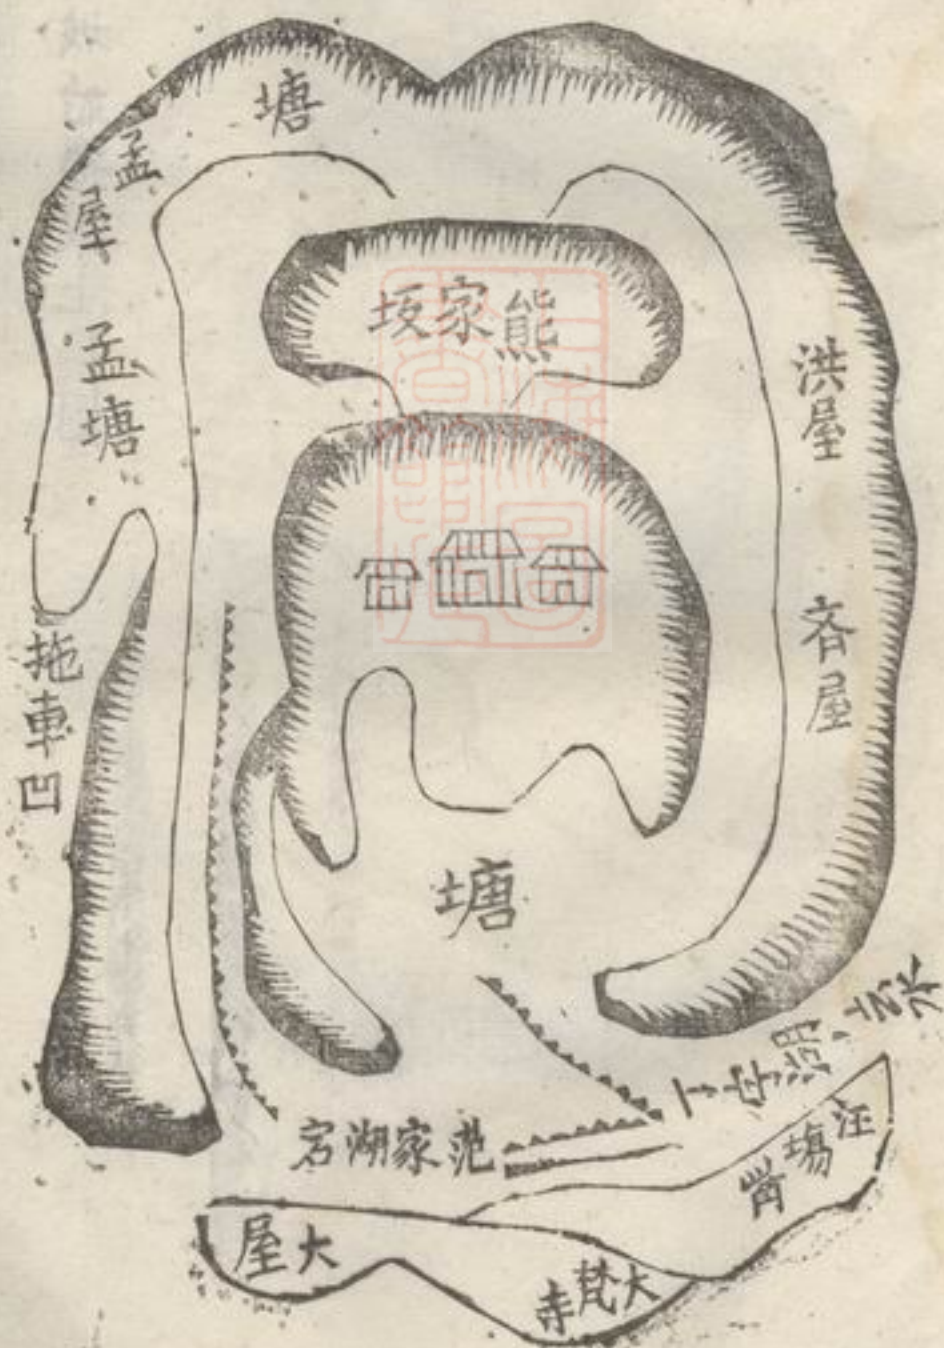 塘
孟屋
孟塘
熊家坂
洪屋
斉屋
拖車凹
塘
范家湖宕
汪塲
大屋
大梵寺